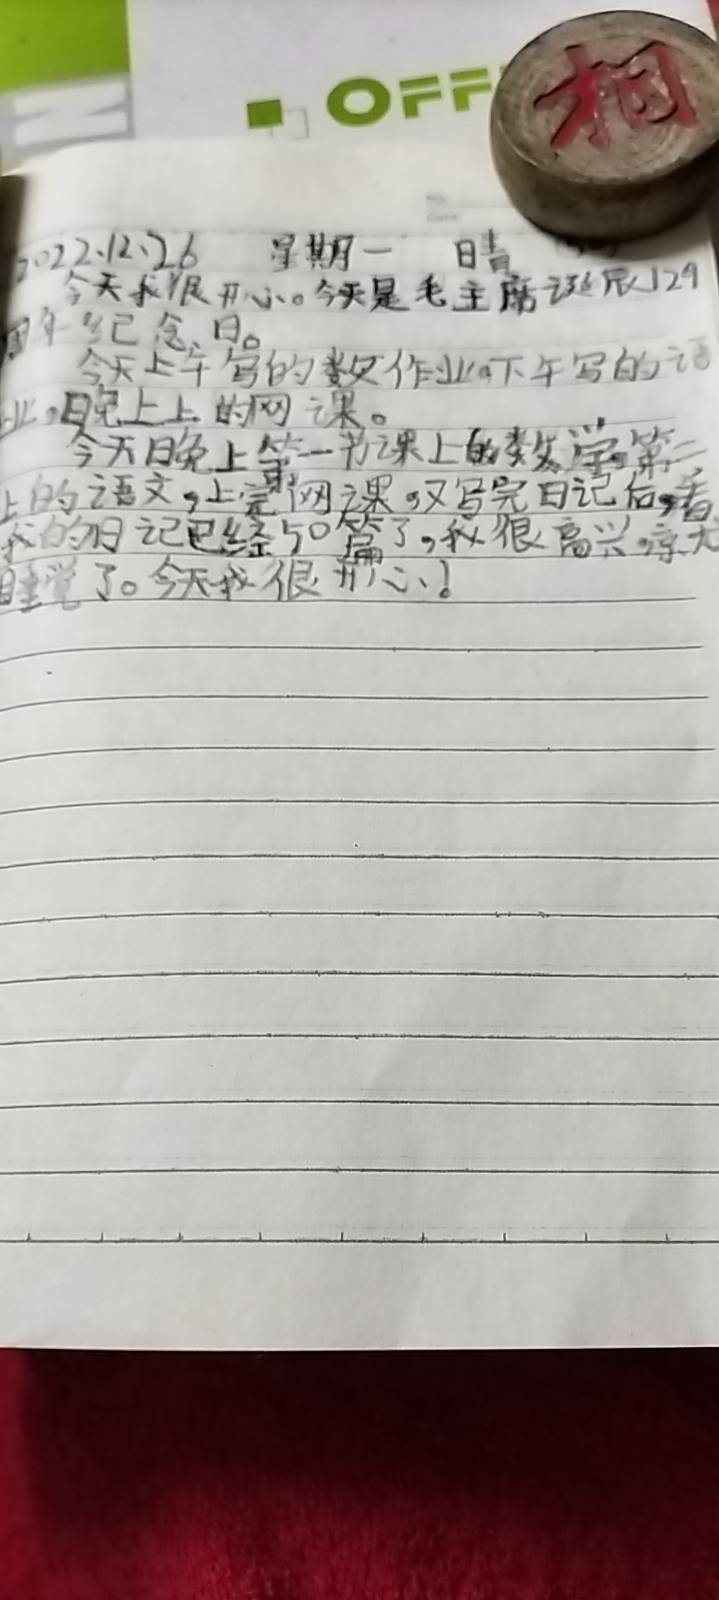 OFF
相
2022.12.26 星期一 晴
今天我很开心。今天是毛主席诞辰129
周年纪念日。
今天上午写的数作业。下午写的语
业,晚上上的网课。
今天晚上第一节课上的数学,第二
上的语文,上完网课,又写完日记后,看
我的日记已经50篇了,我很高兴,
睡觉了。今天我很开心!